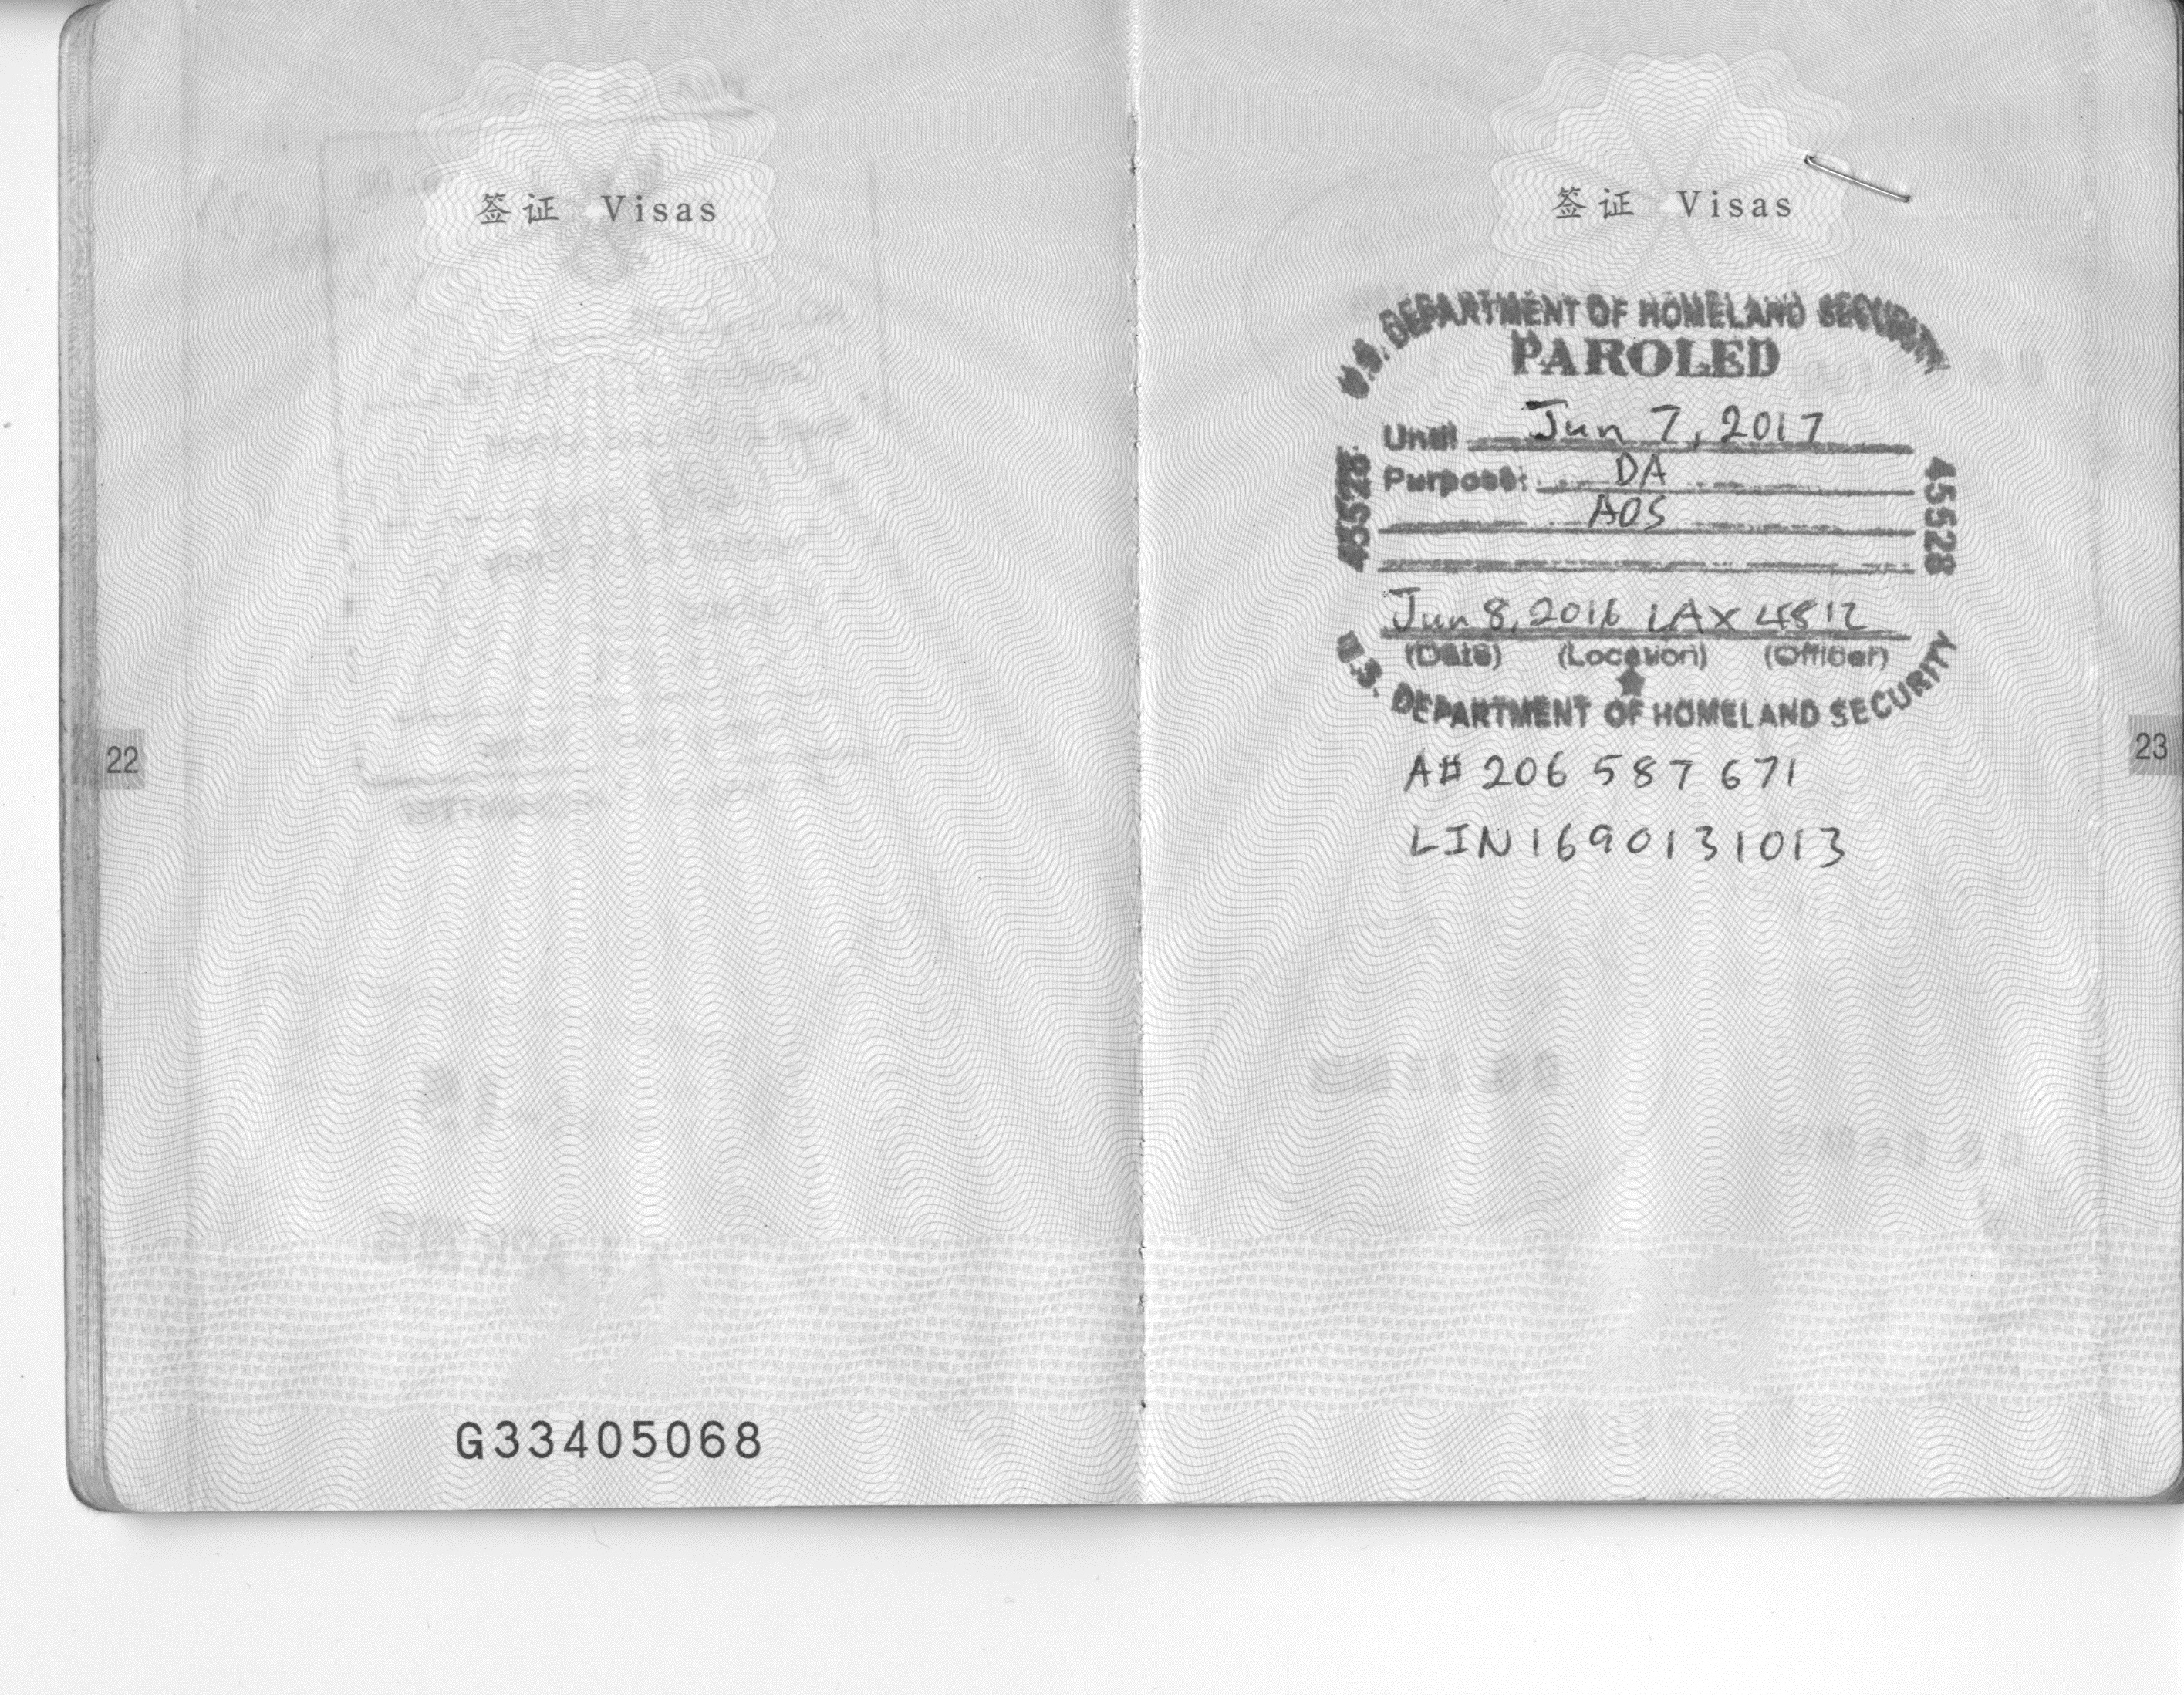 签证 Visas
22
G33405068
签证 Visas
U.S. DEPARTMENT OF HOMELAND SECURITY
PAROLED
Until Jun 7, 2017
Purpose: DA
AOS
45528
45528
Jun 8, 2016 LAX 4812
(Date) (Location) (Officer)
U.S. DEPARTMENT OF HOMELAND SECURITY
A# 206 587 671
LIN1690131013
23